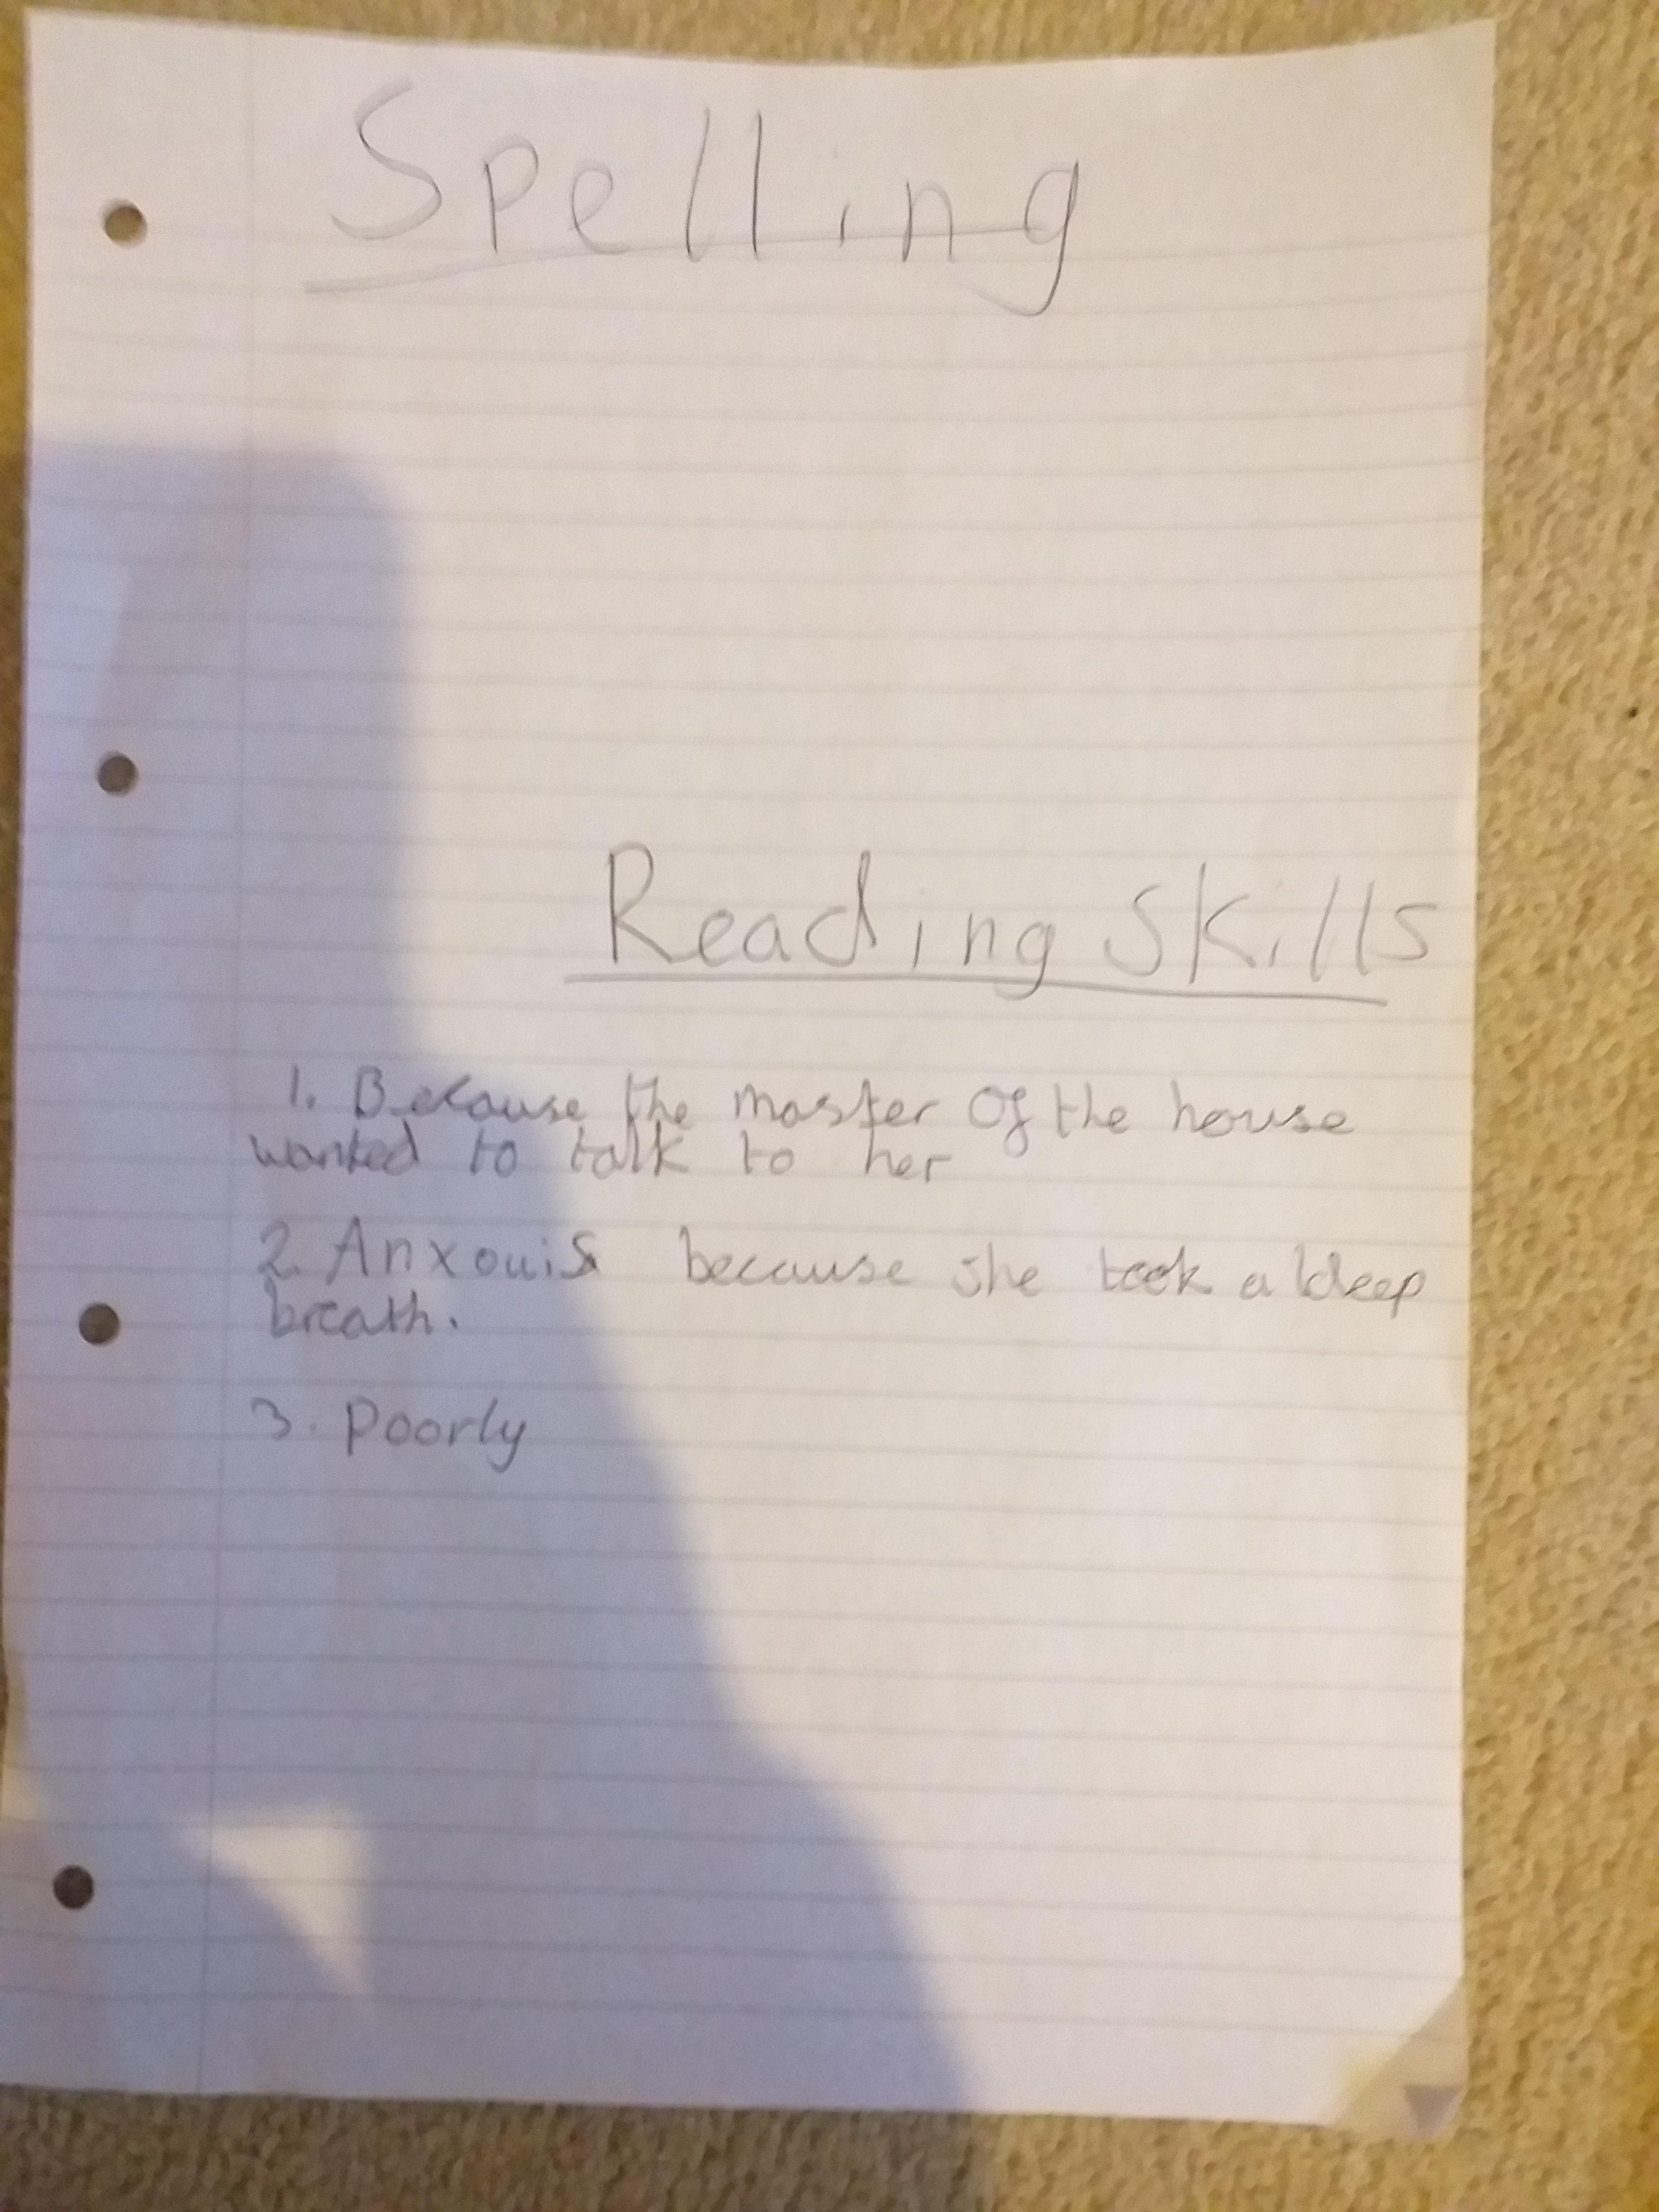 Spelling
Reading Skills
1. Because the master of the house
wanted to talk to her
2. Anxouis because she took a deep
breath.
3. Poorly